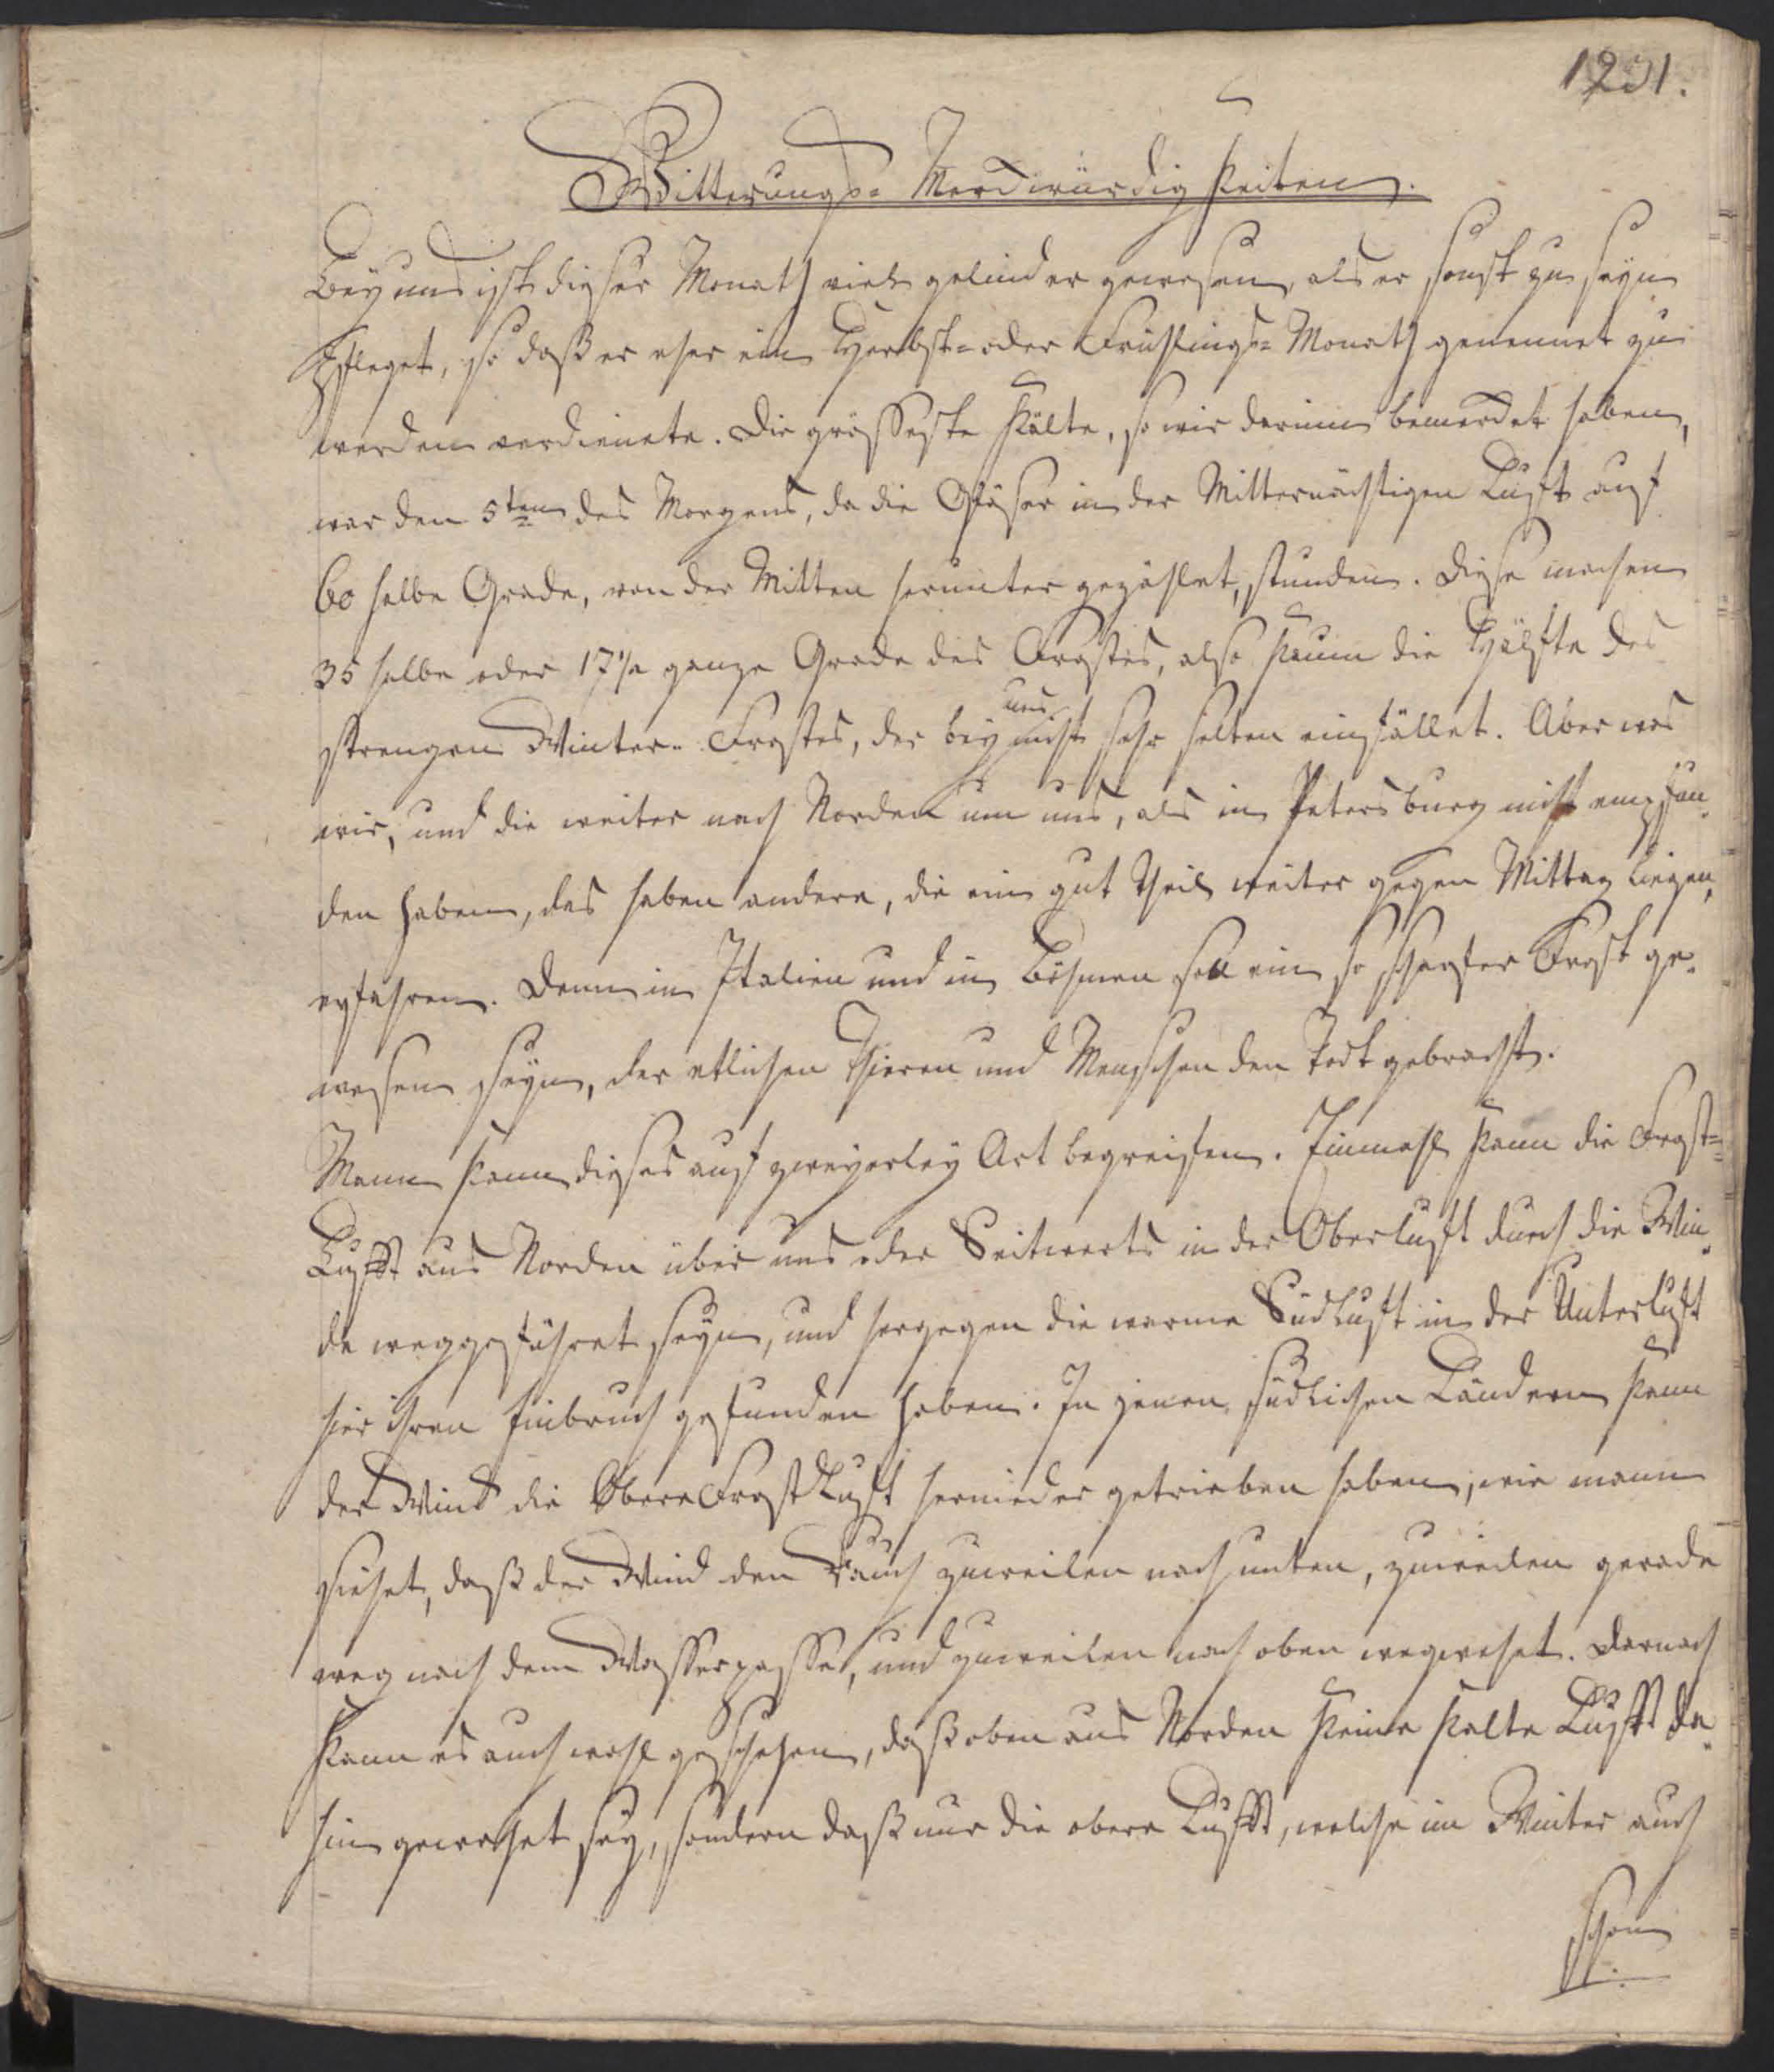 1231.
Witterungs= Merckwürdigkeiten.
Bey uns ist dieser Monath viel gelinder gewesen, als er sonst zu seyn
pfleget, so daß er eher ein Herbst= oder Frühlings= Monath genennet zu
werden verdienete. Die grösseste Kälte, so wir darinn bemercket haben,
war den 5ten des Morgens, da die Gläser in der Mitternächtigen Luft auf
60 halbe Grade, von der Mitten herunter gezählet, stunden. Diese machen
35 halbe oder 17 1/2 ganze Grade des Frostes, also kaum die Hälfte des
strengen Winter= Frostes, der bey uns nicht sehr selten einfället. Aber was
wir, und die weiter nach Norden um uns, als in Petersburg nicht empfun-
den haben, das haben andere, die ein gut Theil weiter gegen Mittag liegen,
erfahren. Denn in Italien und in Böhmen soll ein so scharfer Frost ge-
wesen seyn, der etlichen Thieren und Menschen den Todt gebracht.
Mann kann dieses auf zweyerley Art begreifen. Einmahl kann die Frost=
Lufft aus Norden über uns oder Seitwerts in der Oberluft durch die Win-
de weggeführet seyn, und hergegen die warme Südluft in der Unterluft
hier ihren Einbruch gefunden haben. In jenen südlichen Ländern kann
der Wind die Obere Frostluft hernieder getrieben haben, wie mann
siehet, daß der Wind den Rauch zuweilen nach unten, zuweilen gerade
weg nach dem Wasserpasse, und zuweilen nach oben wegwehet. Darnach
kann es auch wohl geschehen, daß eben aus Norden keine kalte Lufft da-
hin gewehet sey, sondern daß nur die obere Lufft, welche im Winter auch
schon